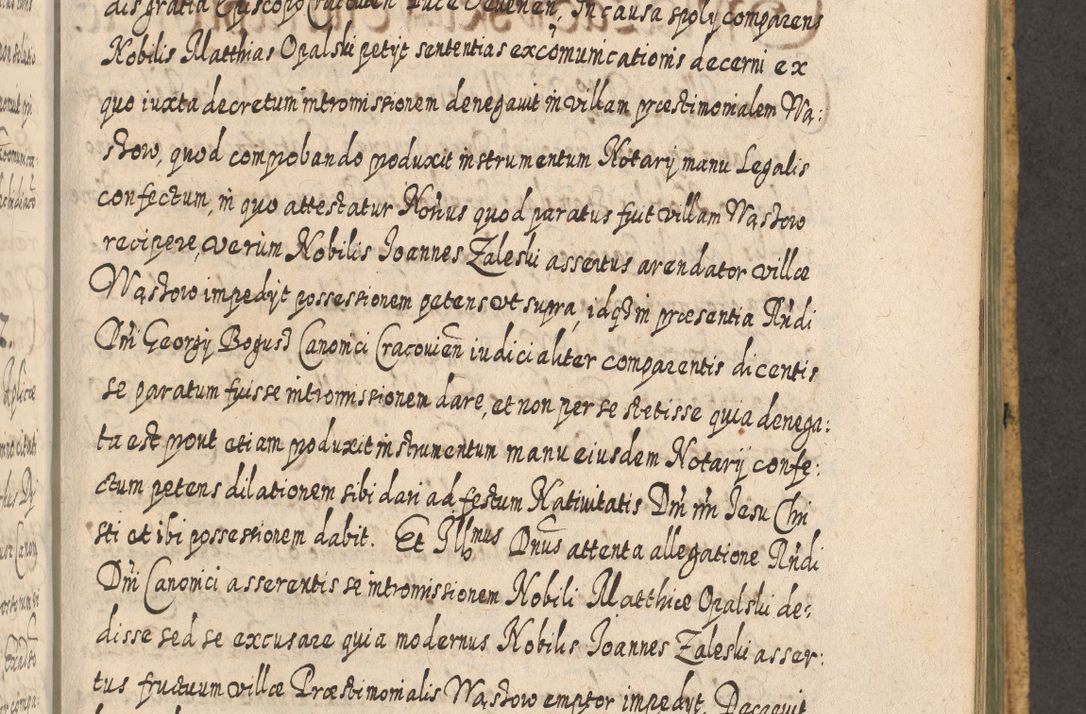 dis gratia Episcopo Cracovien Duce Severien, In causa spoly comparens
Nobilis Matthias Opalski petyt sententias excōmunicationis decerni ex
quo iuxta decretum intromissionem denegavit in villam præstimonialem Wą:
stow, quod comprobando produxit instrumentum Notarij manu Legalis
confectum, in quo attestatur quod paratus fuit villam Wąstow
recipere, verum Nobilis Joannes Zaleski assertus arendator villæ
Wąstow impedyt possessionem petens ut supra, idq3 in præsentia Rñdi
Dñi Georgij Canonici Cracovieñ iudicialiter comparentis dicentis
se paratum fuisse intromissionem dare, et non per se stetisse quia denega:
ta est prout etiam produxit instrumentum manu eiusdem Notarij confe:
ctum petens dilationem sibi dari ad festum Nativitatis Dñi nři Jesu Chri
sti et ibi possessionem dabit. Et Illmus Dnus attenta allegatione Rñdi
Dñi Canonici asserentis se intromissionem Nobili Matthiæ Opalski de:
disse sed se excusare quia modernus Nobilis Joannes Zaleski asser:
tus fructuum villæ Præstimonialis Wąstow emptor impedyt. Dacavit